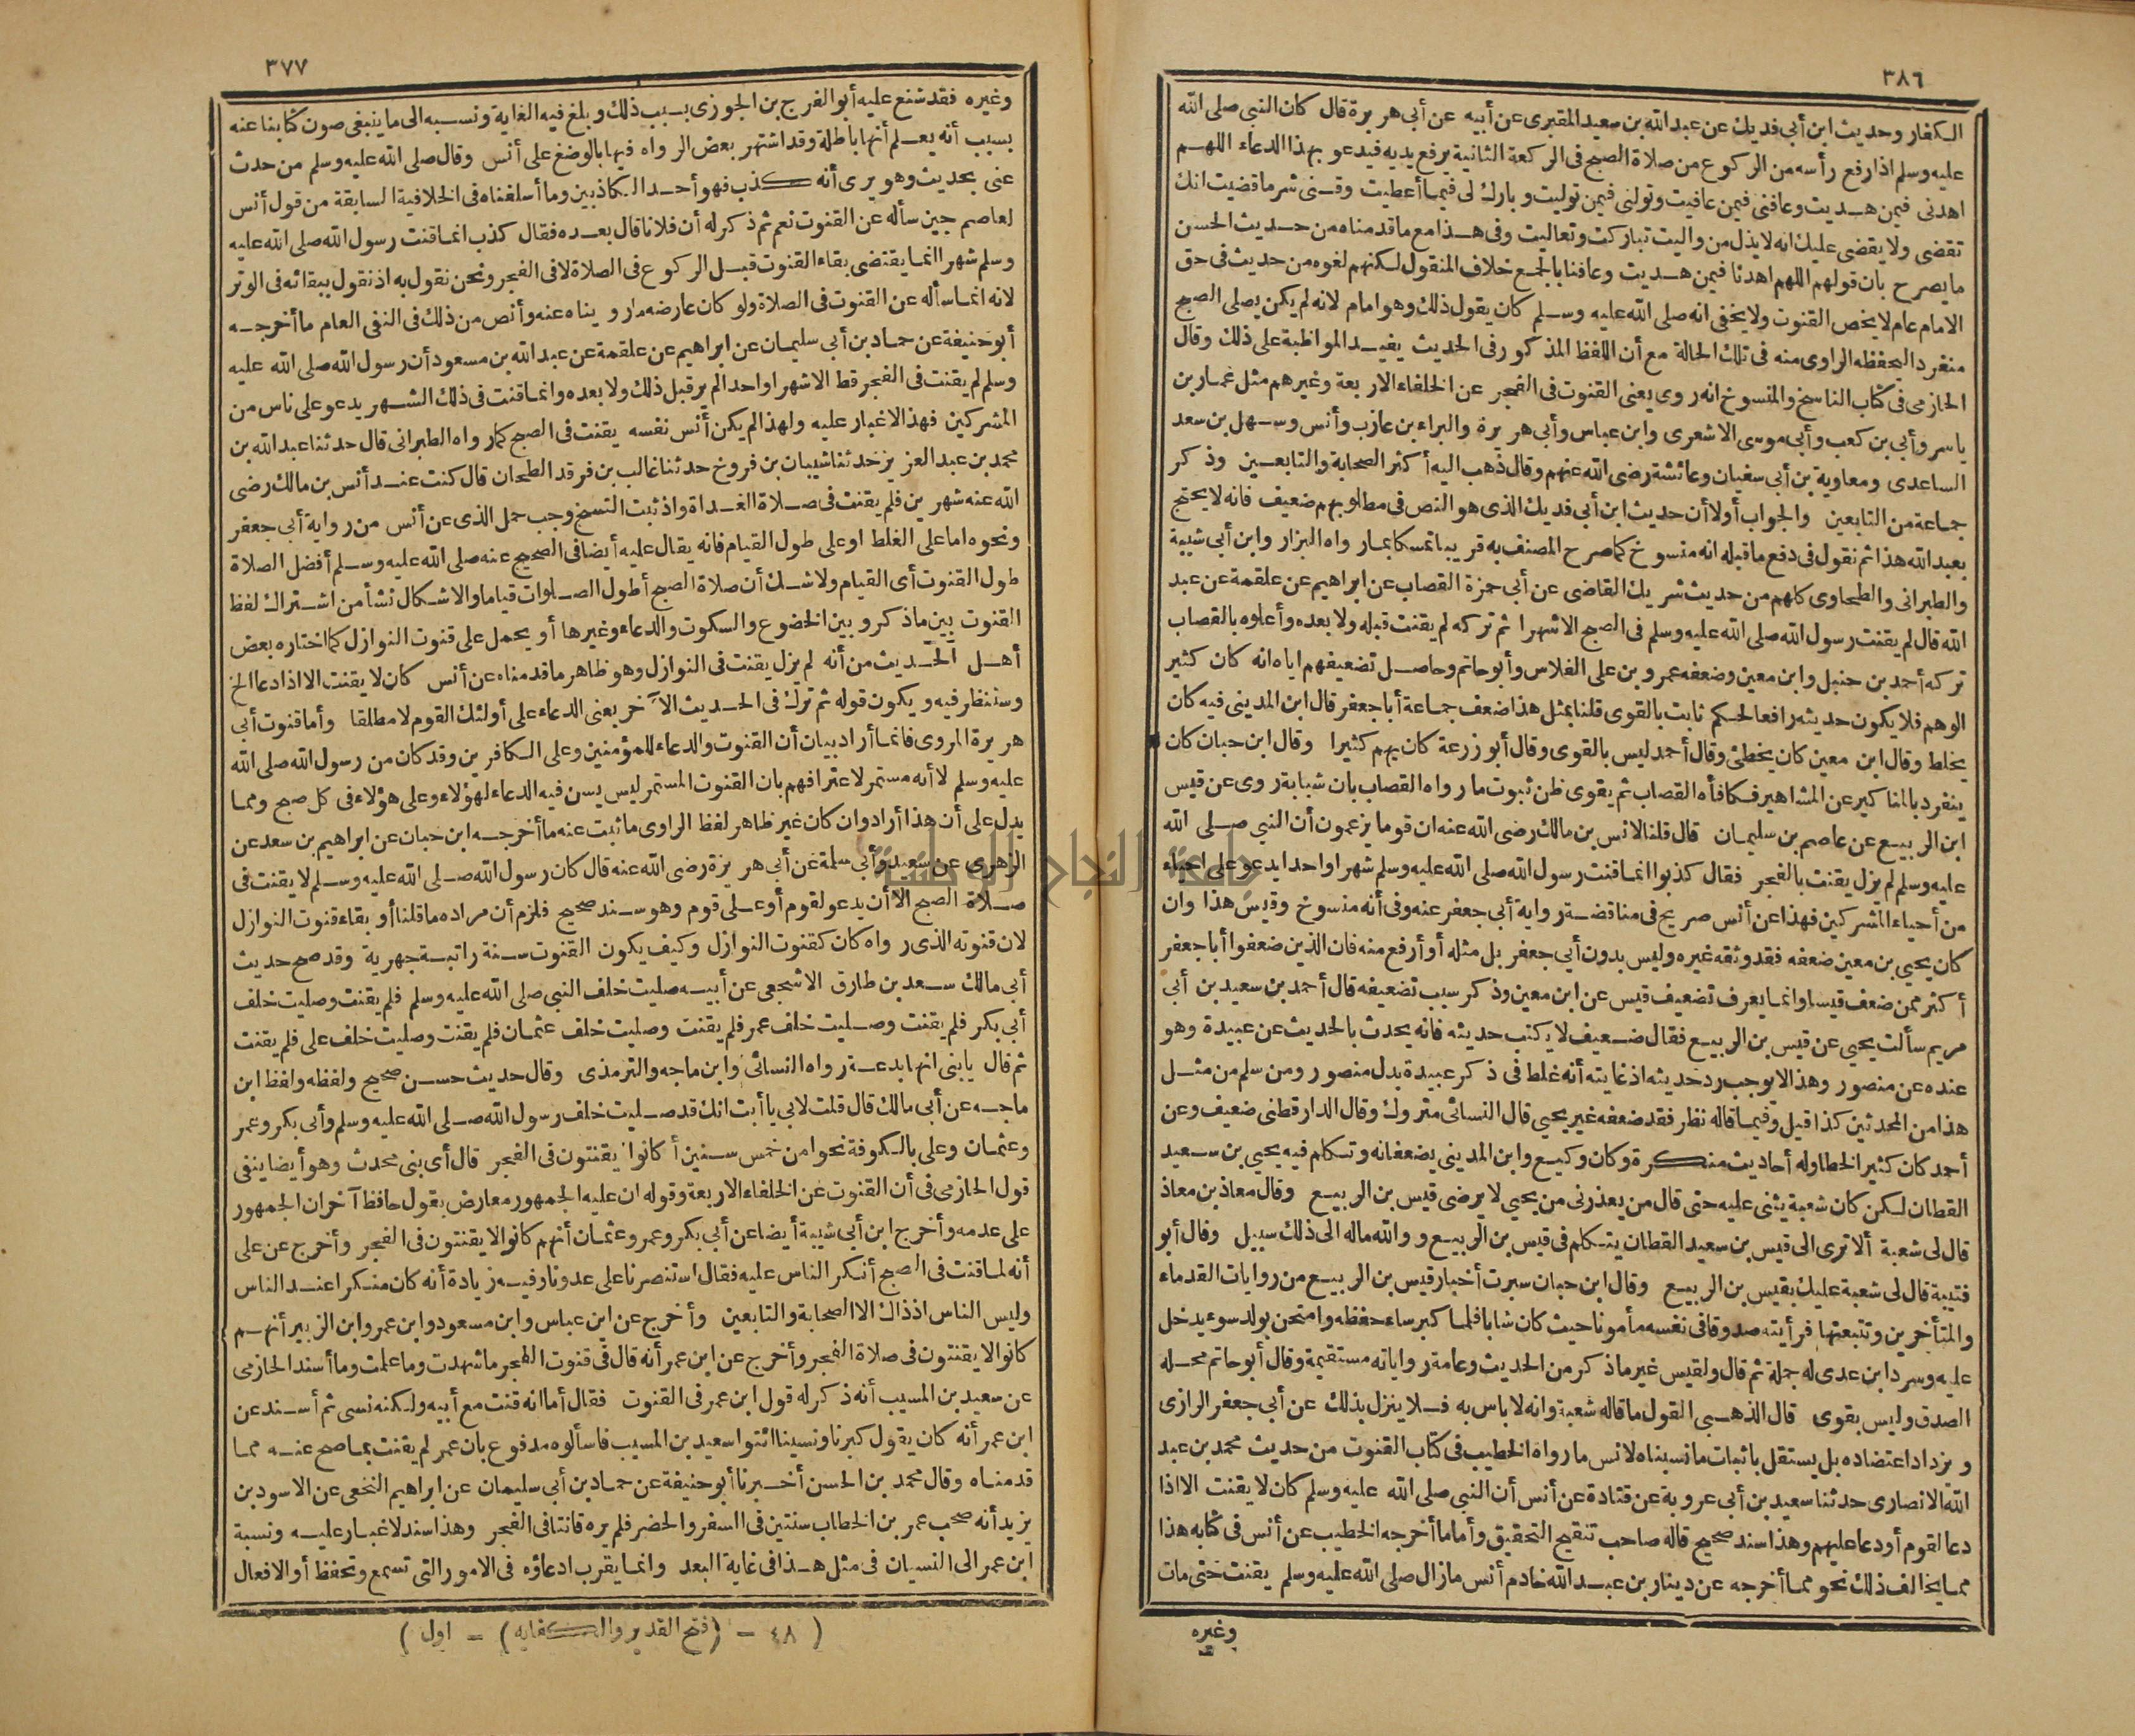 ٣٨٦
الكفار وحديث ابن أبي فديك عن عبد الله بن سعيد المقبرى عن أبيه عن أبي هريرة قال كان النبي صلى الله
عليه وسلم اذا رفع رأسه من الركوع من صلاة الصبح فى الركعة الثانية يرفع يديه فيدعو بهذا الدعاء اللهم
اهدنى فيمن هديت وعافنى فيمن عافيت وتولنى فيمن توليت وبارك لى فيما أعطيت وقنى شر ما قضيت انك
تقضى ولا يقضى عليك انه لا يذل من واليت تباركت وتعاليت وفى هذا مع ما قدمناه من حديث الحسن
ما يصرح بان قولهم اللهم اهدنا فيمن هديت وعافنا بالجمع خلاف المنقول لكنهم لغوه من حديث فى حق
الامام عام لا يخص القنوت ولا يخفى انه صلى الله عليه وسلم كان يقول ذلك وهو امام لانه لم يكن يصلى الصبح
منفردا ليحفظه الراوى منه فى تلك الحالة مع أن اللفظ المذكور فى الحديث يفيد المواظبة على ذلك وقال
الحازمى فى كتاب الناسخ والمنسوخ انه روى يعنى القنوت فى الفجر عن الخلفاء الاربعة وغيرهم مثل عمار بن
ياسر وأبي بن كعب وأبي موسى الاشعرى وابن عباس وأبي هريرة والبراء بن عازب وأنس وسهل بن سعد
الساعدى ومعاوية بن أبي سفيان وعائشة رضى الله عنهم وقال ذهب اليه أكثر الصحابة والتابعين وذكر
جماعة من التابعين والجواب أولا أن حديث ابن أبي فديك الذى هو النص فى مطلوبهم ضعيف فانه لا يحتج
بعبد الله هذا ثم نقول فى دفع ما قبله انه منسوخ كما صرح المصنف به قريبا تمسكا بما رواه البزار وابن أبي شيبة
والطبرانى والطحاوى كلهم من حديث شريك القاضى عن أبي حمزة القصاب عن ابراهيم عن علقمة عن عبد
الله قال لم يقنت رسول الله صلى الله عليه وسلم فى الصبح الا شهرا ثم تركه لم يقنت قبله ولا بعده وأعلوه بالقصاب
تركه أحمد بن حنبل وابن معين وضعفه عمرو بن على الفلاس وأبو حاتم وحاصل تضعيفهم اياه انه كان كثير
الوهم فلا يكون حديثه رافعا لحكم ثابت بالقوى قلنا بمثل هذا ضعف جماعة أبا جعفر قال ابن المدينى فيه كان
يخلط وقال ابن معين كان يخطئ وقال أحمد ليس بالقوى وقال أبو زرعة كان يهم كثيرا وقال ابن حبان كان
ينفرد بالمناكير عن المشاهير فكافأه القصاب ثم يقوى ظن ثبوت ما رواه القصاب بان شبابة روى عن قيس
ابن الربيع عن عاصم بن سليمان قال قلنا لانس بن مالك رضى الله عنه ان قوما يزعمون أن النبي صلى الله
عليه وسلم لم يزل يقنت بالفجر فقال كذبوا انما قنت رسول الله صلى الله عليه وسلم شهرا واحدا يدعو على أحياء
من أحياء المشركين فهذا عن أنس صريح فى مناقضة رواية أبي جعفر عنه وفى أنه منسوخ وقيس هذا وان
كان يحيى بن معين ضعفه فقد وثقه غيره وليس بدون أبي جعفر بل مثله أو أرفع منه فان الذين ضعفوا أبا جعفر
أكثر ممن ضعف قيسا وانما يعرف تضعيف قيس عن ابن معين وذكر سبب تضعيفه قال أحمد بن سعيد بن أبي
مريم سألت يحيى عن قيس بن الربيع فقال ضعيف لا يكتب حديثه فانه يحدث بالحديث عن عبيدة وهو
عنده عن منصور وهذا لا يوجب رد حديثه اذ غايته أنه غلط فى ذكر عبيدة بدل منصور ومن سلم من مثل
هذا من المحدثين كذا قيل وفيما قاله نظر فقد ضعفه غير يحيى قال النسائى متروك وقال الدارقطنى ضعيف وعن
أحمد كان كثير الخطا وله أحاديث منكرة وكان وكيع وابن المدينى يضعفانه وتكلم فيه يحيى بن سعيد
القطان لكن كان شعبة يثنى عليه حتى قال من يعذرنى من يحيى لا يرضى قيس بن الربيع وقال معاذ بن معاذ
قال لى شعبة ألا ترى الى قيس بن سعيد القطان يتكلم فى قيس بن الربيع و والله ماله الى ذلك سبيل وقال أبو
قتيبة قال لى شعبة عليك بقيس بن الربيع وقال ابن حبان سبرت أخبار قيس بن الربيع من روايات القدماء
والمتأخرين وتتبعتها فرأيته صدوقا فى نفسه مأمونا حيث كان شابا فلما كبر ساء حفظه وامتحن بولد سوء يدخل
عليه وسرد ابن عدى له جملة ثم قال ولقيس غير ما ذكر من الحديث وعامة رواياته مستقيمة وقال أبو حاتم محله
الصدق وليس بقوى قال الذهبى القول ما قاله شعبة وانه لا باس به فلا ينزل بذلك عن أبي جعفر الرازى
ويزداد اعتضاده بل يستقل باثبات ما نسبناه لانس ما رواه الخطيب فى كتاب القنوت من حديث محمد بن عبد
الله الانصارى حدثنا سعيد بن أبي عروبة عن قتادة عن أنس أن النبي صلى الله عليه وسلم كان لا يقنت الا اذا
دعا لقوم أو دعا عليهم وهذا سند صحيح قاله صاحب تنقيح التحقيق وأما ما أخرجه الخطيب عن أنس فى كتابه هذا
مما يخالف ذلك نحو مما أخرجه عن دينار بن عبد الله خادم أنس ما زال صلى الله عليه وسلم يقنت حتى مات
وغيره
٣٧٧
وغيره فقد شنع عليه أبو الفرج بن الجوزى بسبب ذلك وبلغ فيه الغاية ونسبه الى ما ينبغى صون كتابنا عنه
بسبب أنه يعلم أنها باطلة وقد اشتهر بعض الرواه فيها بالوضع على أنس وقال صلى الله عليه وسلم من حدث
عنى بحديث وهو يرى أنه كذب فهو أحد الكاذبين وما أسلفناه فى الخلافية السابقة من قول أنس
لعاصم حين سأله عن القنوت نعم ثم ذكر له أن فلانا قال بعده فقال كذب انما قنت رسول الله صلى الله عليه
وسلم شهرا انما يقتضى بقاء القنوت قبل الركوع فى الصلاة لا فى الفجر ونحن نقول به اذ نقول ببقائه فى الوتر
لانه انما سأله عن القنوت فى الصلاة ولو كان عارضه ما رويناه عنه وأنص من ذلك فى النفى العام ما أخرجه
أبو حنيفة عن حماد بن أبي سليمان عن ابراهيم عن علقمة عن عبد الله بن مسعود أن رسول الله صلى الله عليه
وسلم لم يقنت فى الفجر قط الا شهرا واحدا لم ير قبل ذلك ولا بعده وانما قنت فى ذلك الشهر يدعو على ناس من
المشركين فهذا لا غبار عليه ولهذا لم يكن أنس نفسه يقنت فى الصبح كما رواه الطبرانى قال حدثنا عبد الله بن
محمد بن عبد العزيز حدثنا شيبان بن فروخ حدثنا غالب بن فرقد الطحان قال كنت عند أنس بن مالك رضى
الله عنه شهرين فلم يقنت فى صلاة الغداة واذ ثبت النسخ وجب حمل الذى عن أنس من رواية أبي جعفر
ونحوه اما على الغلط او على طول القيام فانه يقال عليه أيضا فى الصحيح عنه صلى الله عليه وسلم أفضل الصلاة
طول القنوت أى القيام ولا شك أن صلاة الصبح أطول الصلوات قياما والاشكال نشأ من اشتراك لفظ
القنوت بين ما ذكر وبين الخضوع والسكوت والدعاء وغيرها أو يحمل على قنوت النوازل كما اختاره بعض
أهل الحديث من أنه لم يزل يقنت فى النوازل وهو ظاهر ما قدمناه عن أنس كان لا يقنت الا اذا دعا الخ
وسننظر فيه ويكون قوله ثم ترك فى الحديث الآخر يعنى الدعاء على أولئك القوم لا مطلقا وأما قنوت أبي
هريرة المروى فانما أراد بيان أن القنوت والدعاء للمؤمنين وعلى الكافرين وقد كان من رسول الله صلى الله
عليه وسلم لا أنه مستمر لاعترافهم بان القنوت المستمر ليس يسن فيه الدعاء لهؤلاء وعلى هؤلاء فى كل صبح ومما
يدل على أن هذا أراد وان كان غير ظاهر لفظ الراوى ما ثبت عنه ما أخرجه ابن حبان عن ابراهيم بن سعد عن
الزهرى عن سعيد وأبي سلمة عن أبي هريرة رضى الله عنه قال كان رسول الله صلى الله عليه وسلم لا يقنت فى
صلاة الصبح الا أن يدعو لقوم أو على قوم وهو سند صحيح فلزم أن مراده ما قلنا أو بقاء قنوت النوازل
لان قنوته الذى رواه كان كقنوت النوازل وكيف يكون القنوت سنة راتبة جهرية وقد صح حديث
أبي مالك سعد بن طارق الاشجعى عن أبيه صليت خلف النبي صلى الله عليه وسلم فلم يقنت وصليت خلف
أبي بكر فلم يقنت وصليت خلف عمر فلم يقنت وصليت خلف عثمان فلم يقنت وصليت خلف على فلم يقنت
ثم قال يا بنى انها بدعة رواه النسائى وابن ماجه والترمذى وقال حديث حسن صحيح ولفظه ولفظ ابن
ماجه عن أبي مالك قال قلت لابي يا أبت انك قد صليت خلف رسول الله صلى الله عليه وسلم وأبي بكر وعمر
وعثمان وعلى بالكوفة نحوا من خمس سنين أكانوا يقنتون فى الفجر قال أى بنى محدث وهو أيضا ينفى
قول الحازمى فى أن القنوت عن الخلفاء الاربعة وقوله ان عليه الجمهور معارض بقول حافظ آخر ان الجمهور
على عدمه وأخرج ابن أبي شيبة أيضا عن أبي بكر وعمر وعثمان أنهم كانوا لا يقنتون فى الفجر وأخرج عن على
أنه لما قنت فى الصبح أنكر الناس عليه فقال استنصرنا على عدونا وفيه زيادة أنه كان منكرا عند الناس
وليس الناس اذ ذاك الا الصحابة والتابعين وأخرج عن ابن عباس وابن مسعود وابن عمر وابن الزبير أنهم
كانوا لا يقنتون فى صلاة الفجر وأخرج عن ابن عمر أنه قال فى قنوت الفجر ما شهدت وما علمت وما أسند الحازمى
عن سعيد بن المسيب أنه ذكر له قول ابن عمر فى القنوت فقال أما انه قنت مع أبيه ولكنه نسى ثم أسند عن
ابن عمر أنه كان يقول كبرنا ونسينا ائتوا سعيد بن المسيب فاسألوه مدفوع بان عمر لم يقنت بما صح عنه مما
قدمناه وقال محمد بن الحسن أخبرنا أبو حنيفة عن حماد بن أبي سليمان عن ابراهيم النخعى عن الاسود بن
يزيد أنه صحب عمر بن الخطاب سنتين فى السفر والحضر فلم يره قانتا فى الفجر وهذا سند لا غبار عليه ونسبة
ابن عمر الى النسيان فى مثل هذا فى غاية البعد وانما يقرب ادعاؤه فى الامور التى تسمع وتحفظ أو الافعال
( ٤٨ - (فتح القدير والكفايه) - اول )
جامعة النجاح الوطنية